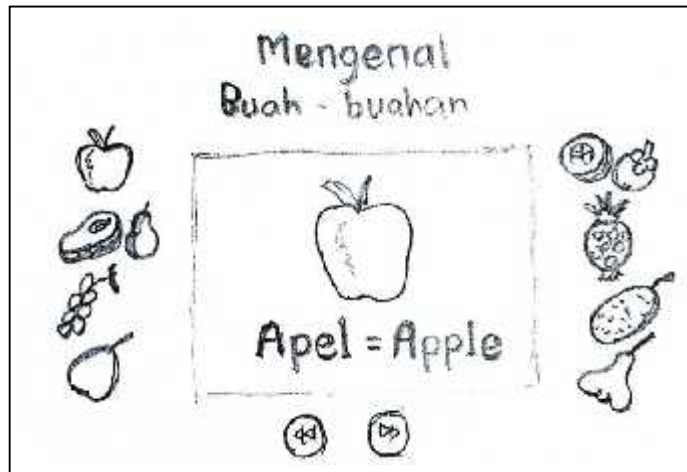 Mengenal
Buah - buahan
Apel = Apple